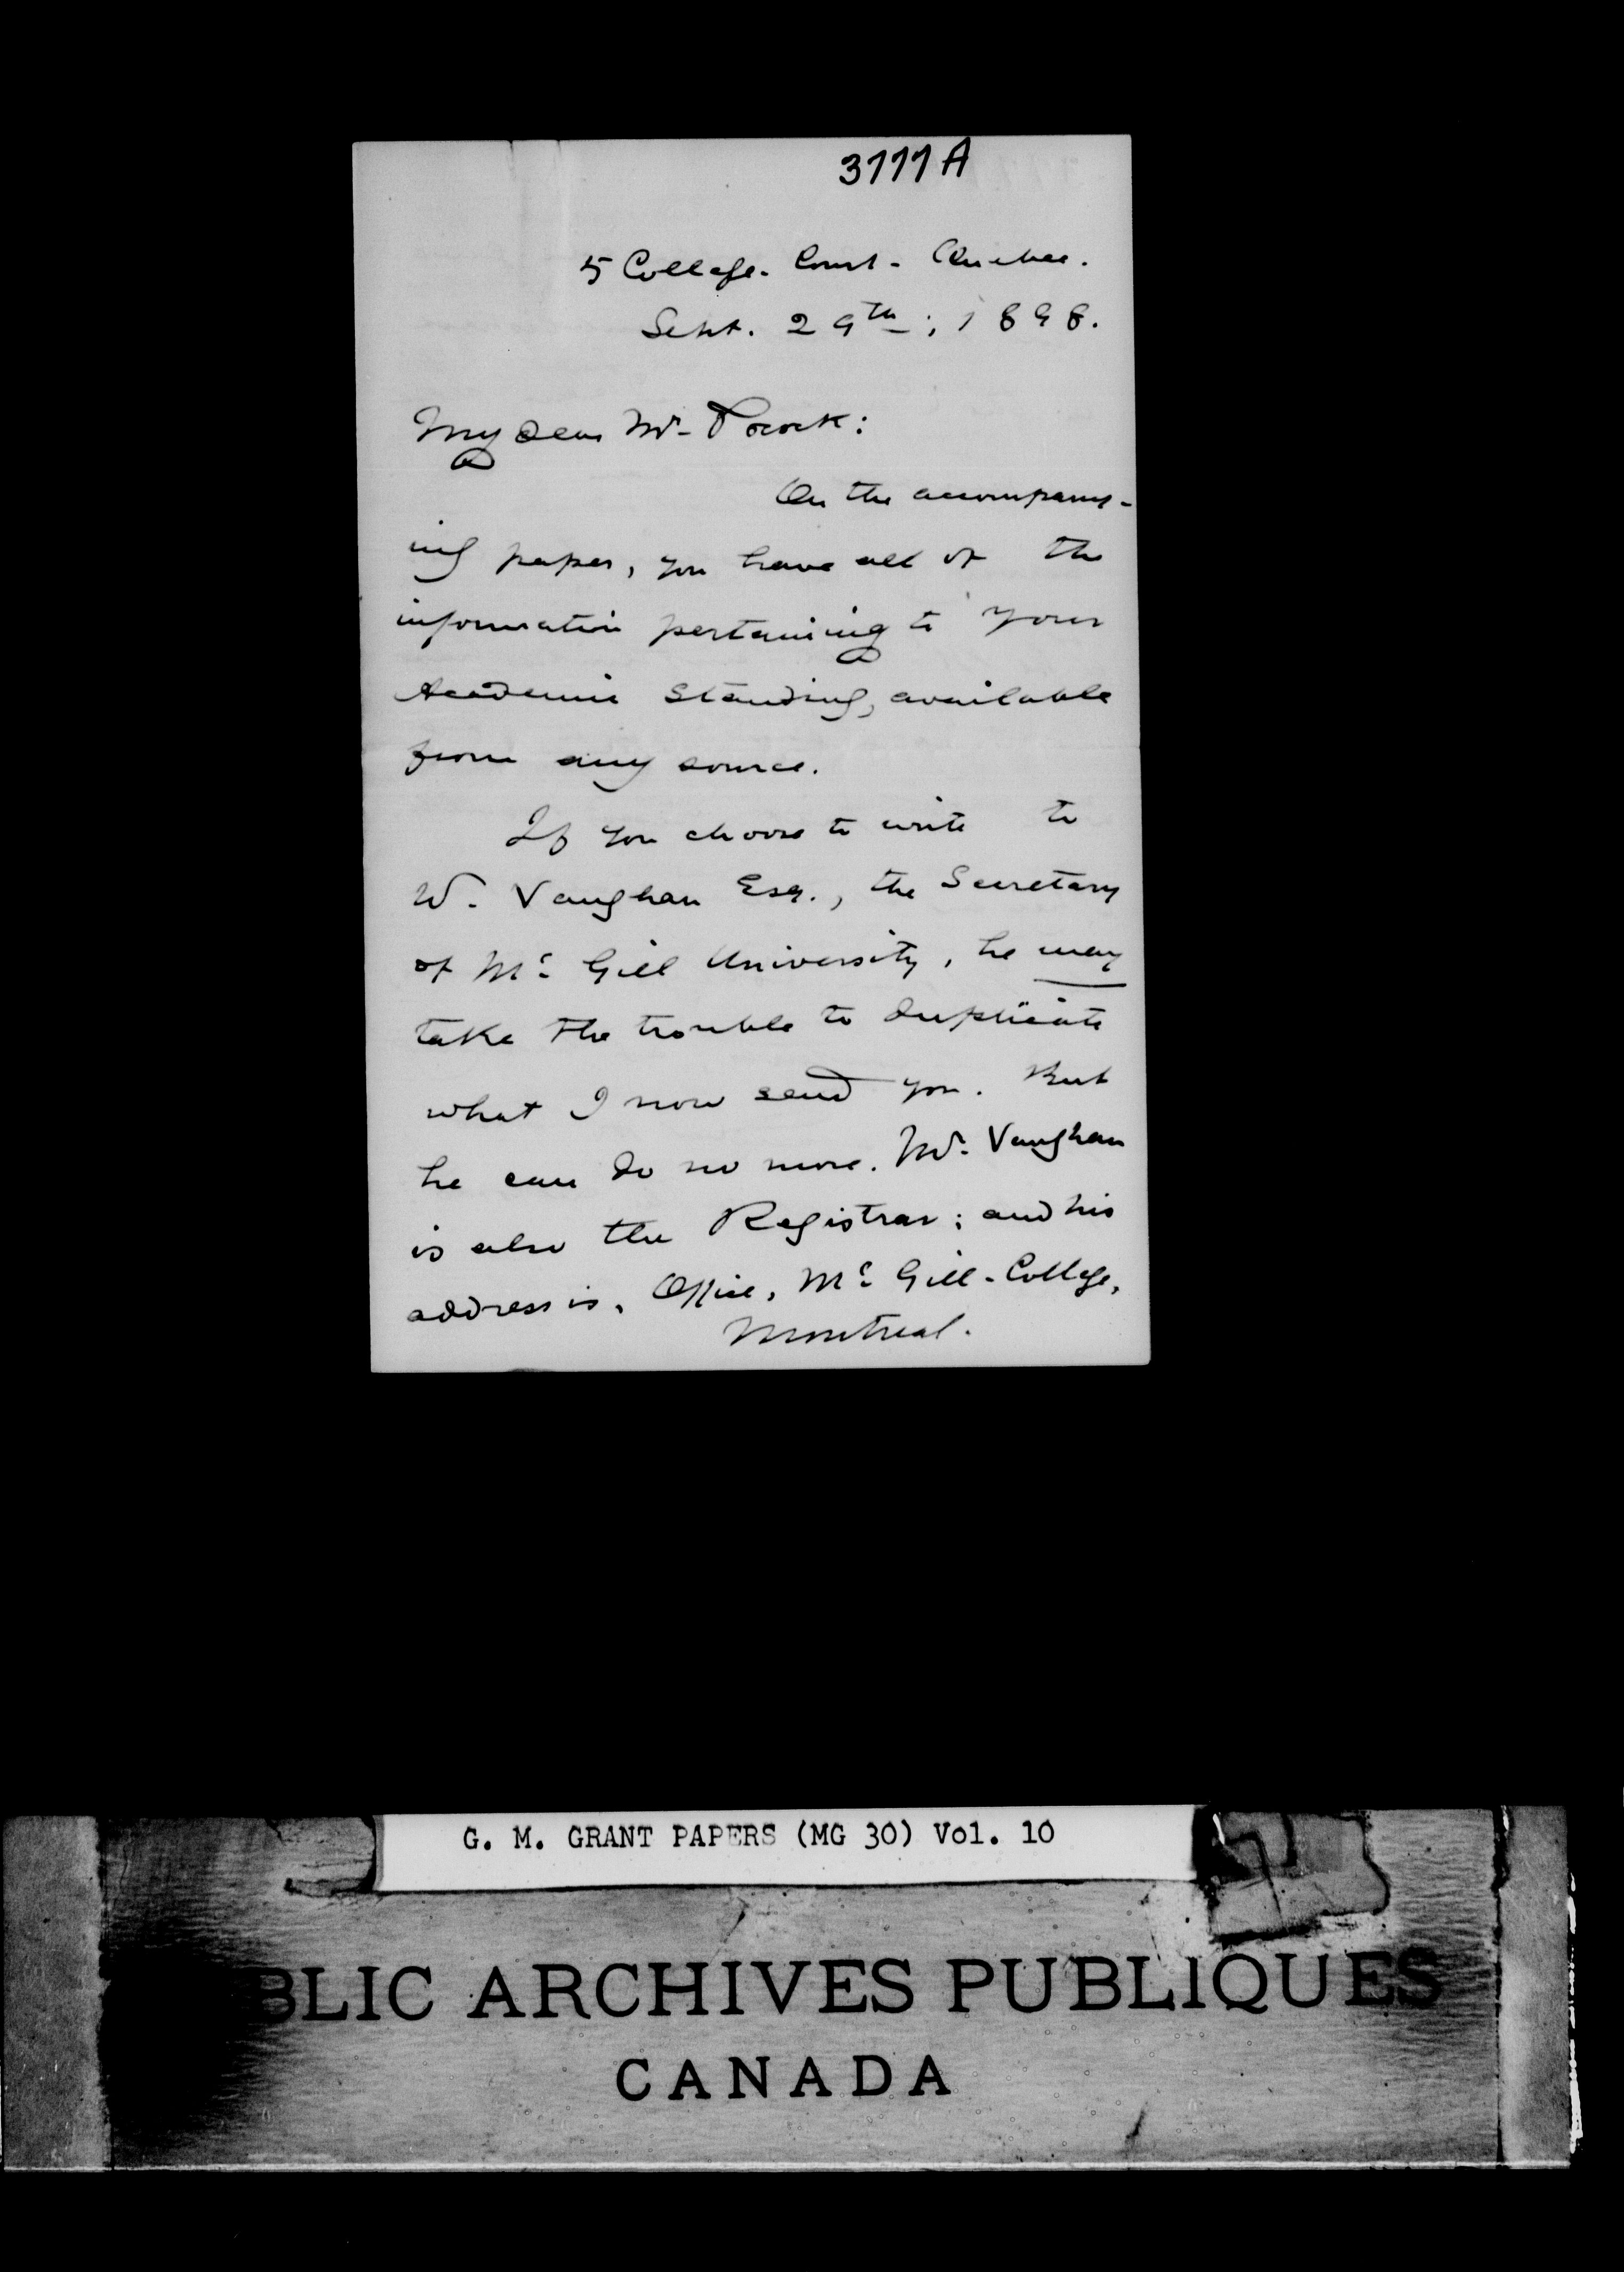 3777A
5 College-Court-Quebec.
Sept. 29th; 1898.
My dear Mr. Pocock:
On the accompany-
ing paper, you have all of the
information pertaining to your
Academic Standing, available
from any source.
If you choose to write to
W. Vaughan Esq., the Secretary
of Mc Gill University, he may
take the trouble to duplicate
what I now send you. But
he can do no more. Mr. Vaughan
is also the Registrar; and his
address is, Office, Mc Gill-College,
Montreal.
G. M. GRANT PAPERS (MG 30) Vol. 10
BLIC ARCHIVES PUBLIQUES
CANADA